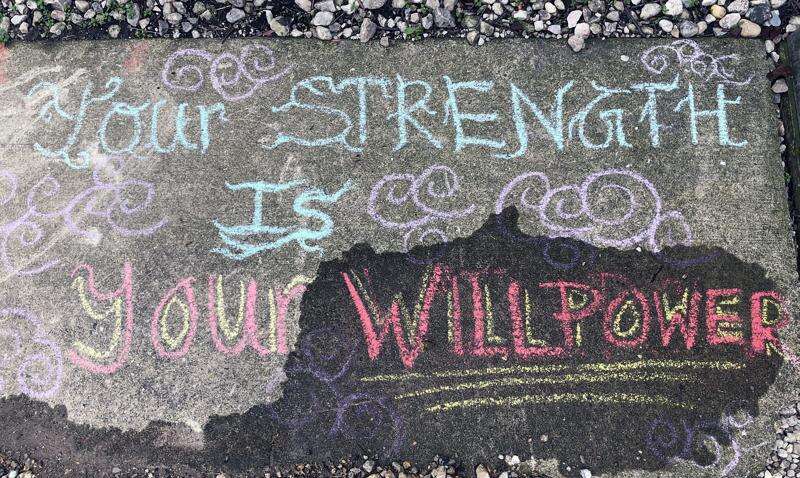 Your STRENGTH
Is
Your WILLPOWER